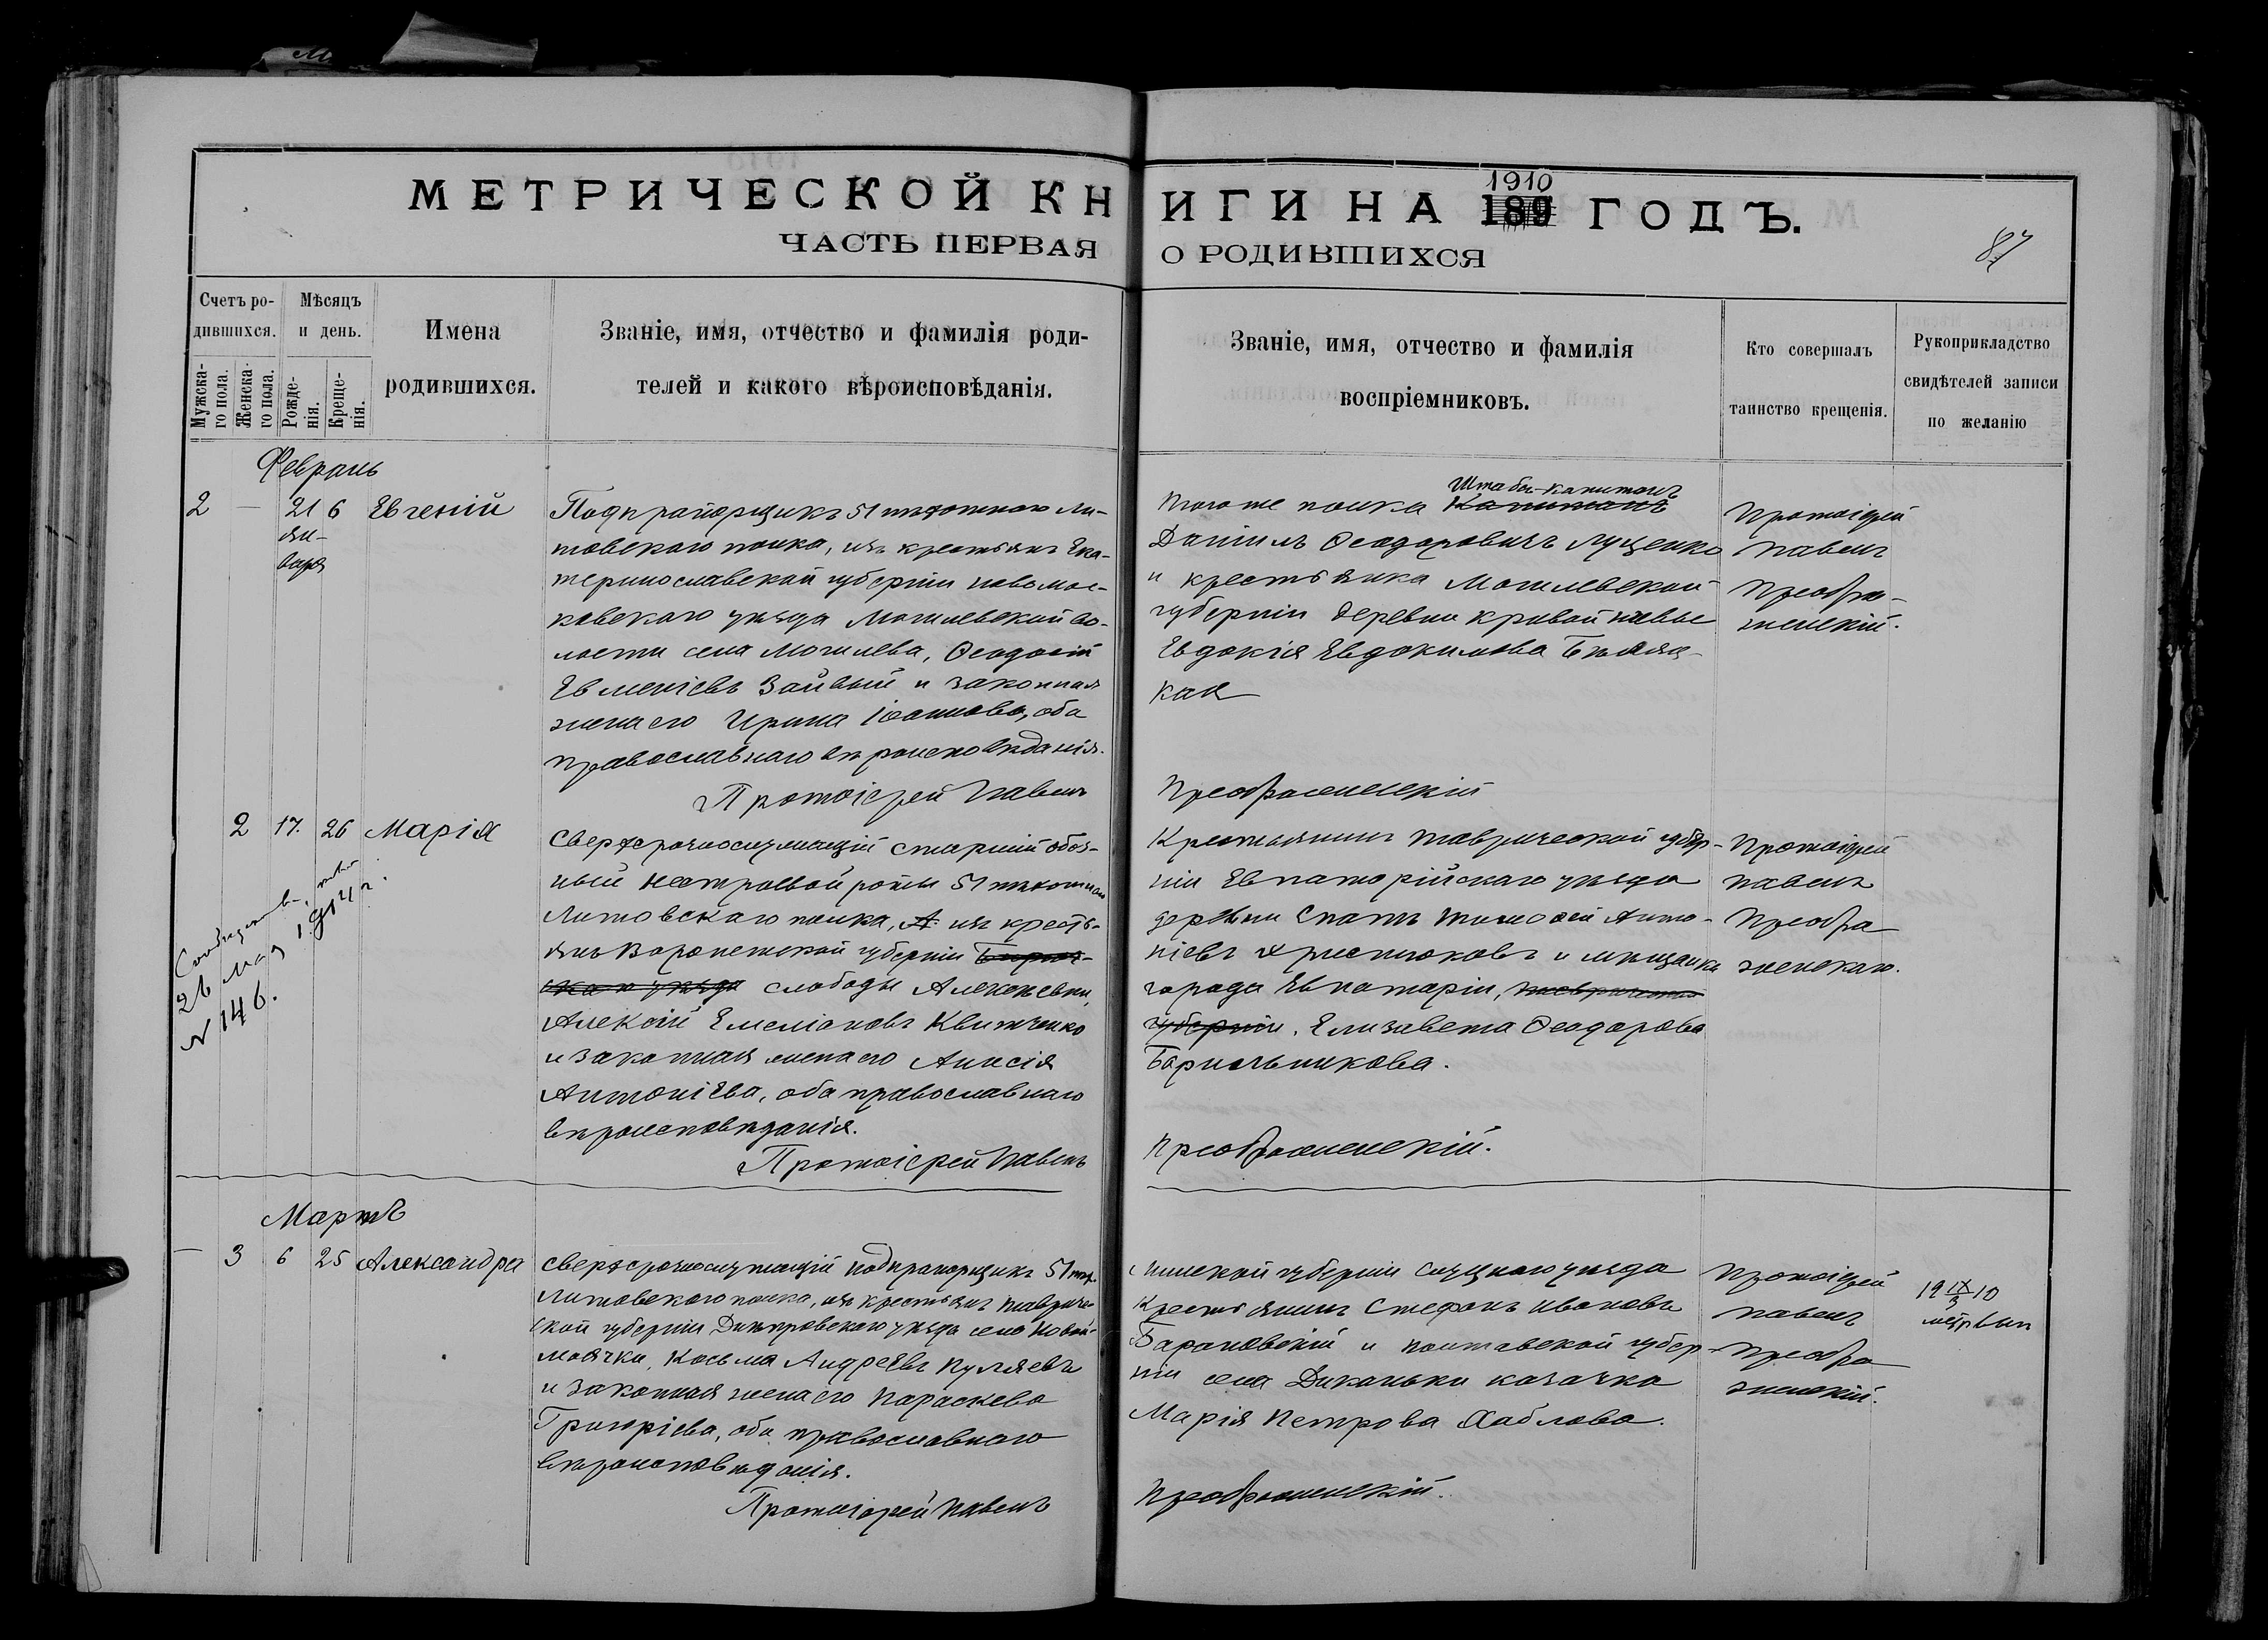 МЕТРИЧЕСКОЙ КНИГИ НА 1910 189 ГОДЪ.
ЧАСТЬ ПЕРВАЯ О РОДИВШИХСЯ
87
Счетъ ро-
дившихся.
Мужска-
го пола.
Женска-
го пола.
Мѣсяцъ
и день.
Рожде-
нія.
Креще-
нія.
Имена
родившихся.
Званіе, имя, отчество и фамилія роди-
телей и какого вѣроисповѣданія.
Званіе, имя, отчество и фамилія
воспріемниковъ.
Кто совершалъ
таинство крещенія.
Рукоприкладство
свидѣтелей записи
по желанію
Февраль
2 — 21 6 Евгеній
Ян-
варя
Подпрапорщикъ 51 пѣхотнаго Ли-
товскаго полка, изъ крестьянъ Ека-
теринославской губерніи Новомос-
ковскаго уѣзда Могилевской во-
лости села Могилева, Ѳеодосій
Евменіевъ Зайвый и законная
жена его Ирина Іоаннова, оба
православнаго вѣроисповѣданія.
Протоіерей Павелъ
Того же полка Капитанъ Штабсъ-капитанъ
Даніилъ Ѳеодоровичъ Луценко
и крестьянка Могилевской
губерніи деревни Кривой Нивы
Евдокія Евдокимова
кая
Преображенскій
Протоіерей
Павелъ
Преобра-
женскій.
2 17. 26 Марія
26 мая 1914 г.
N 146.
Сверхсрочнослужащій старшій обоз-
ный нестроевой роты 51 пѣхотнаго
Литовскаго полка, изъ кресть-
янъ Воронежской губерніи Бирюч-
скаго уѣзда слободы Алексѣевки,
Алексій Емеліановъ Квитченко
и законная жена его Анисія
Антоніева, оба православнаго
вѣроисповѣданія.
Протоіерей Павелъ
Крестьянинъ Таврической губер-
ніи Евпаторійскаго уѣзда
деревни Спатъ Тимоѳей Анто-
ніевъ Христюковъ и мѣщанка
города Евпаторіи, Таврической
губерніи, Елизавета Ѳеодорова
Барильникова.
Преображенскій.
Протоіерей
Павелъ
Преобра
женскаго.
Мартъ
— 3 6 25 Александра
Сверхсрочнослужащій подпрапорщикъ 51 пѣх.
Литовскаго полка, изъ крестьянъ Тавриче-
ской губерніи Днѣпровскаго уѣзда села Новой-
Маячки, Косьма Андреевъ Пуляевъ
и законная жена его Параскева
Григоріева, оба православнаго
вѣроисповѣданія.
Протоіерей Павелъ
Минской губерніи Слуцкаго уѣзда
крестьянинъ Стефанъ Ивановъ
Барановскій и Полтавской губер-
ніи села Диканьки казачка
Марія Петрова Хаблова.
Преображенскій.
Протоіерей
Павелъ
Преобра
женскій.
19 IX/3 10